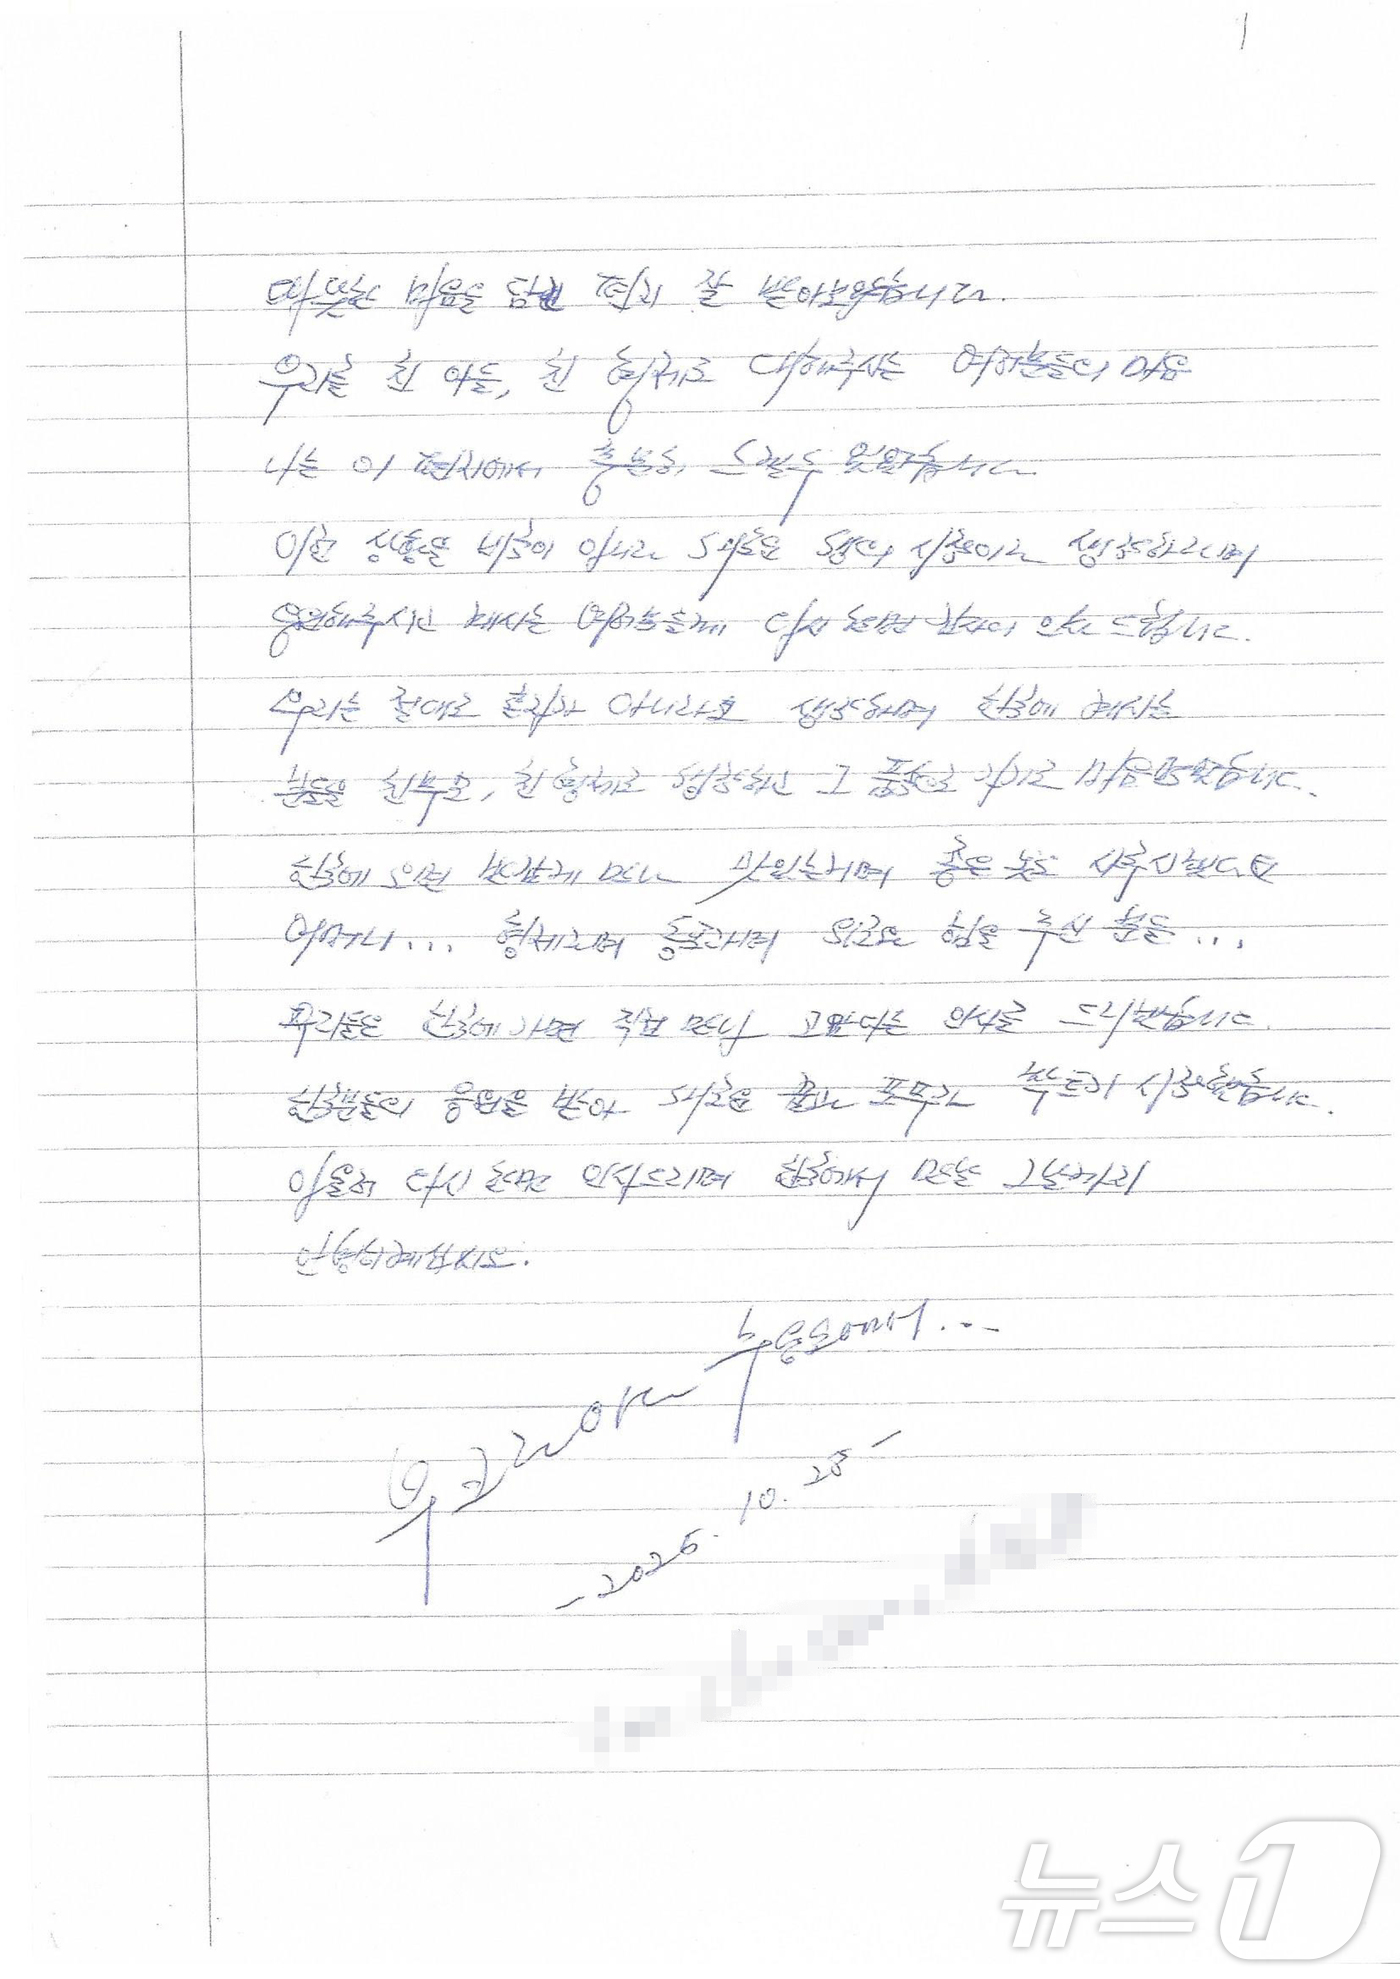 따뜻한 마음을 담은 편지 잘 받아보았습니다.
우리를 친 아들, 친 형제로 대해주시는 여러분들의 마음
나는 이 편지에서 충분히 느낄수 있었습니다
이한 상황을 비극이 아니라 새로운 생의 시작이라 생각하며
응원해주시고 계시는 여러분들께 다시 한번 감사의 인사 드립니다.
우리는 절대로 혼자가 아니라고 생각하며 한국에 계시는
분들을 친부모, 친 형제로 생각하고 그 품속으로 가기로 마음먹었습니다.
한국에 오면 반갑게 만나 맛있는거며 좋은 옷도 사주시겠다던
어머니... 형제라며 동포라며 위로와 힘을 주신 분들...
우리들은 한국에 가면 직접 만나 고맙다는 인사를 드리겠습니다.
한국분들의 응원을 받아 새로운 꿈과 포부가 싹트기 시작했습니다.
아울러 다시 한번 인사드리며 한국에서 만날 그날까지
안녕히계십시오.
우크라이나 수용소에서...
-2025. 10. 28-
뉴스1